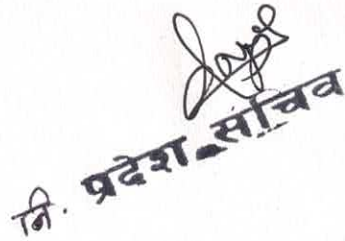 नि. प्रदेश सचिव